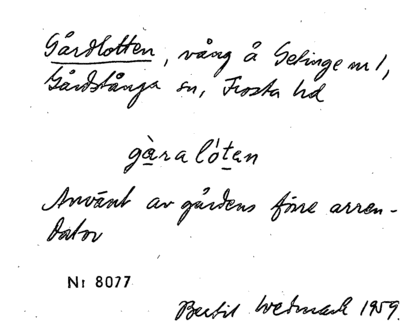 Gårdlotten, vång å Getinge nr 1,
Gårdstånga sn, Frosta hd
gàra ló́tan
Använt av gårdens förre arren-
dator
Nr 8077
Bertil Wedmark 1959.